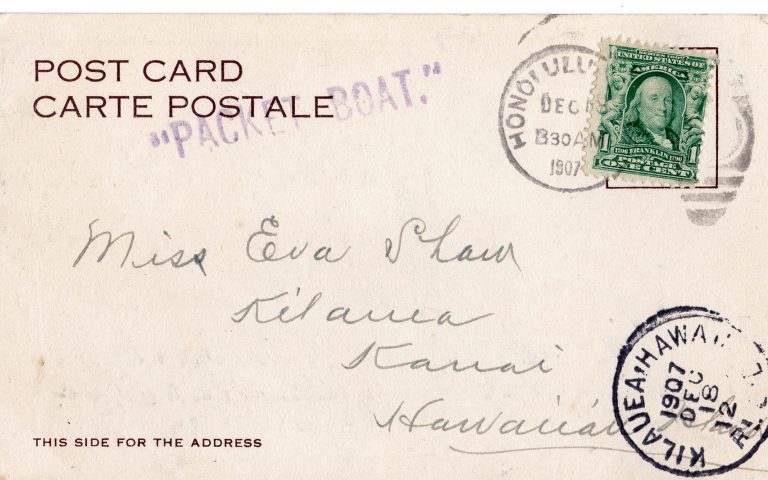 POST CARD
CARTE POSTALE
"PACKET BOAT."
HONOLULU
DEC
830AM
1907
UNITED STATES OF
AMERICA
1 1706 FRANKLIN 1790 1
POSTAGE
ONE CENT
Miss Eva Shaw
Kilauea
Kauai
Hawaiian
KILAUEA, HAWAII
1907
DEC
18
12
THIS SIDE FOR THE ADDRESS